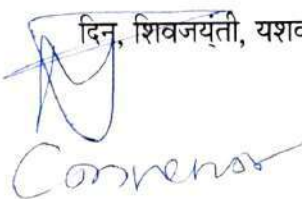 दिन, शिवजयंती,
Convenor